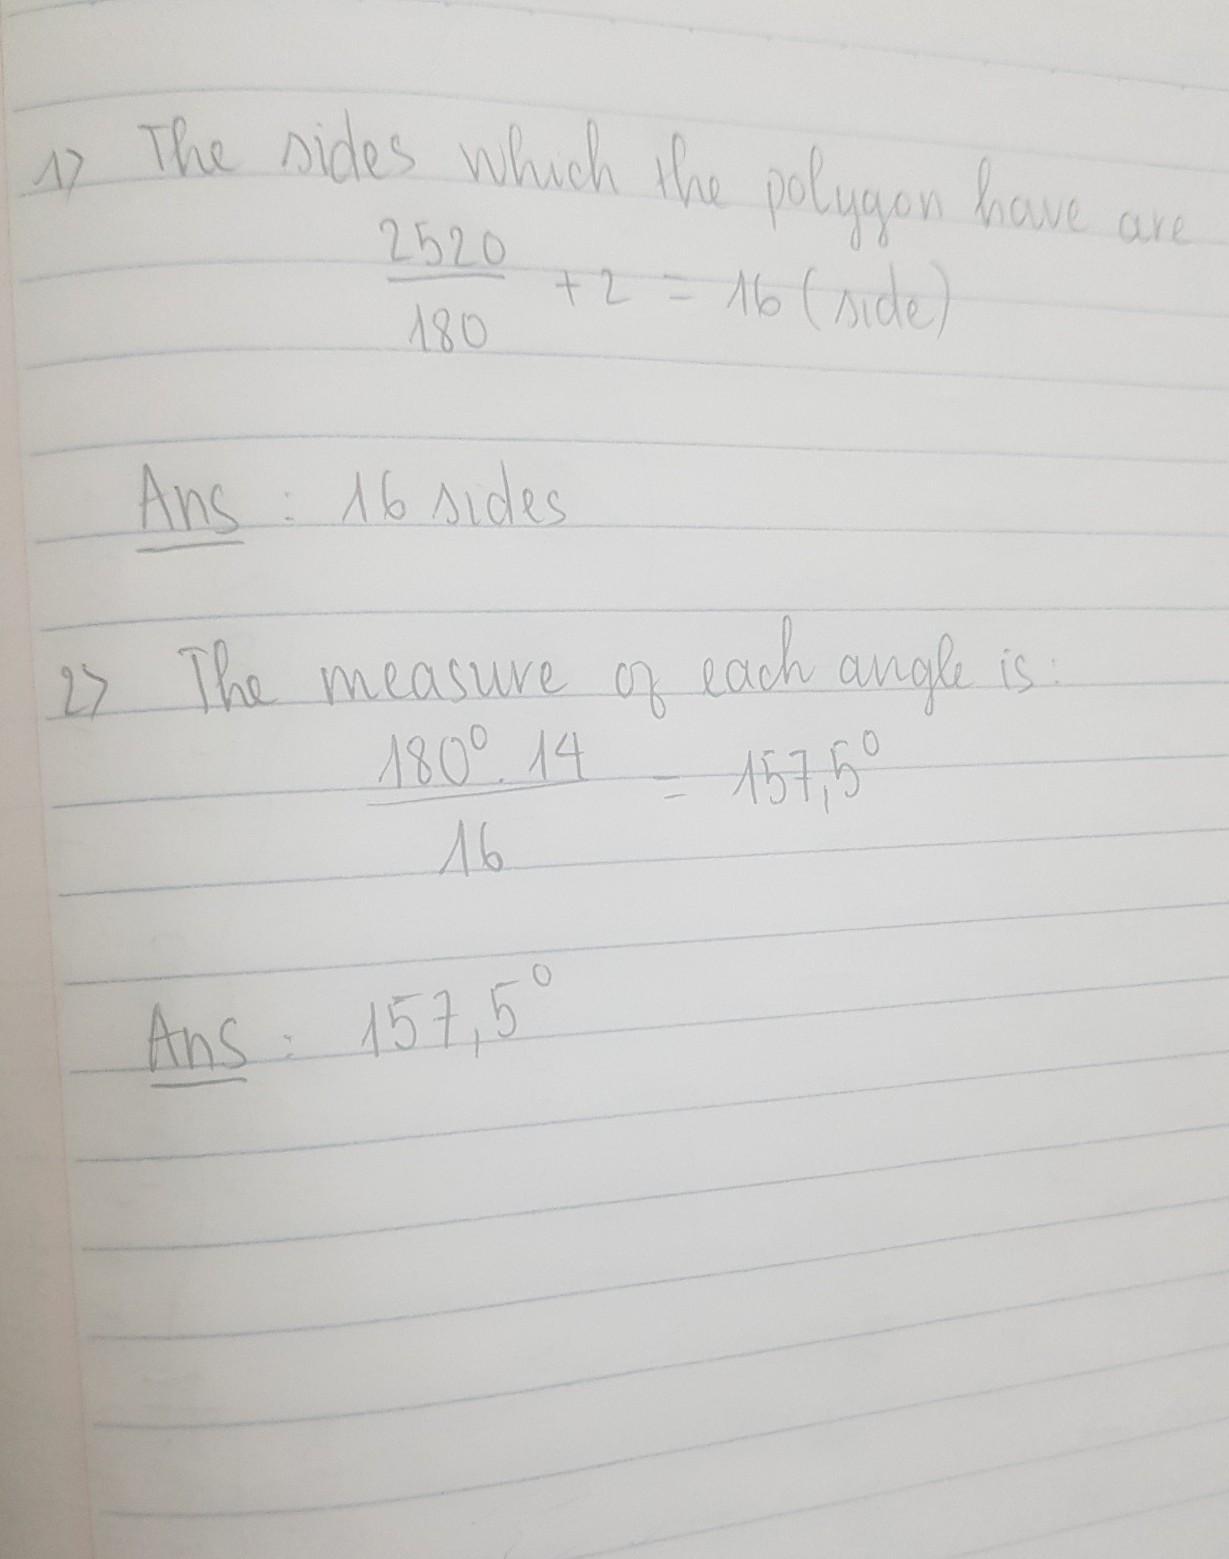 1) The sides which the polygon have are
2520
180
+ 2 = 16 (side)
Ans : 16 sides
2) The measure of each angle is:
180° . 14
16
= 157,5°
Ans : 157,5°